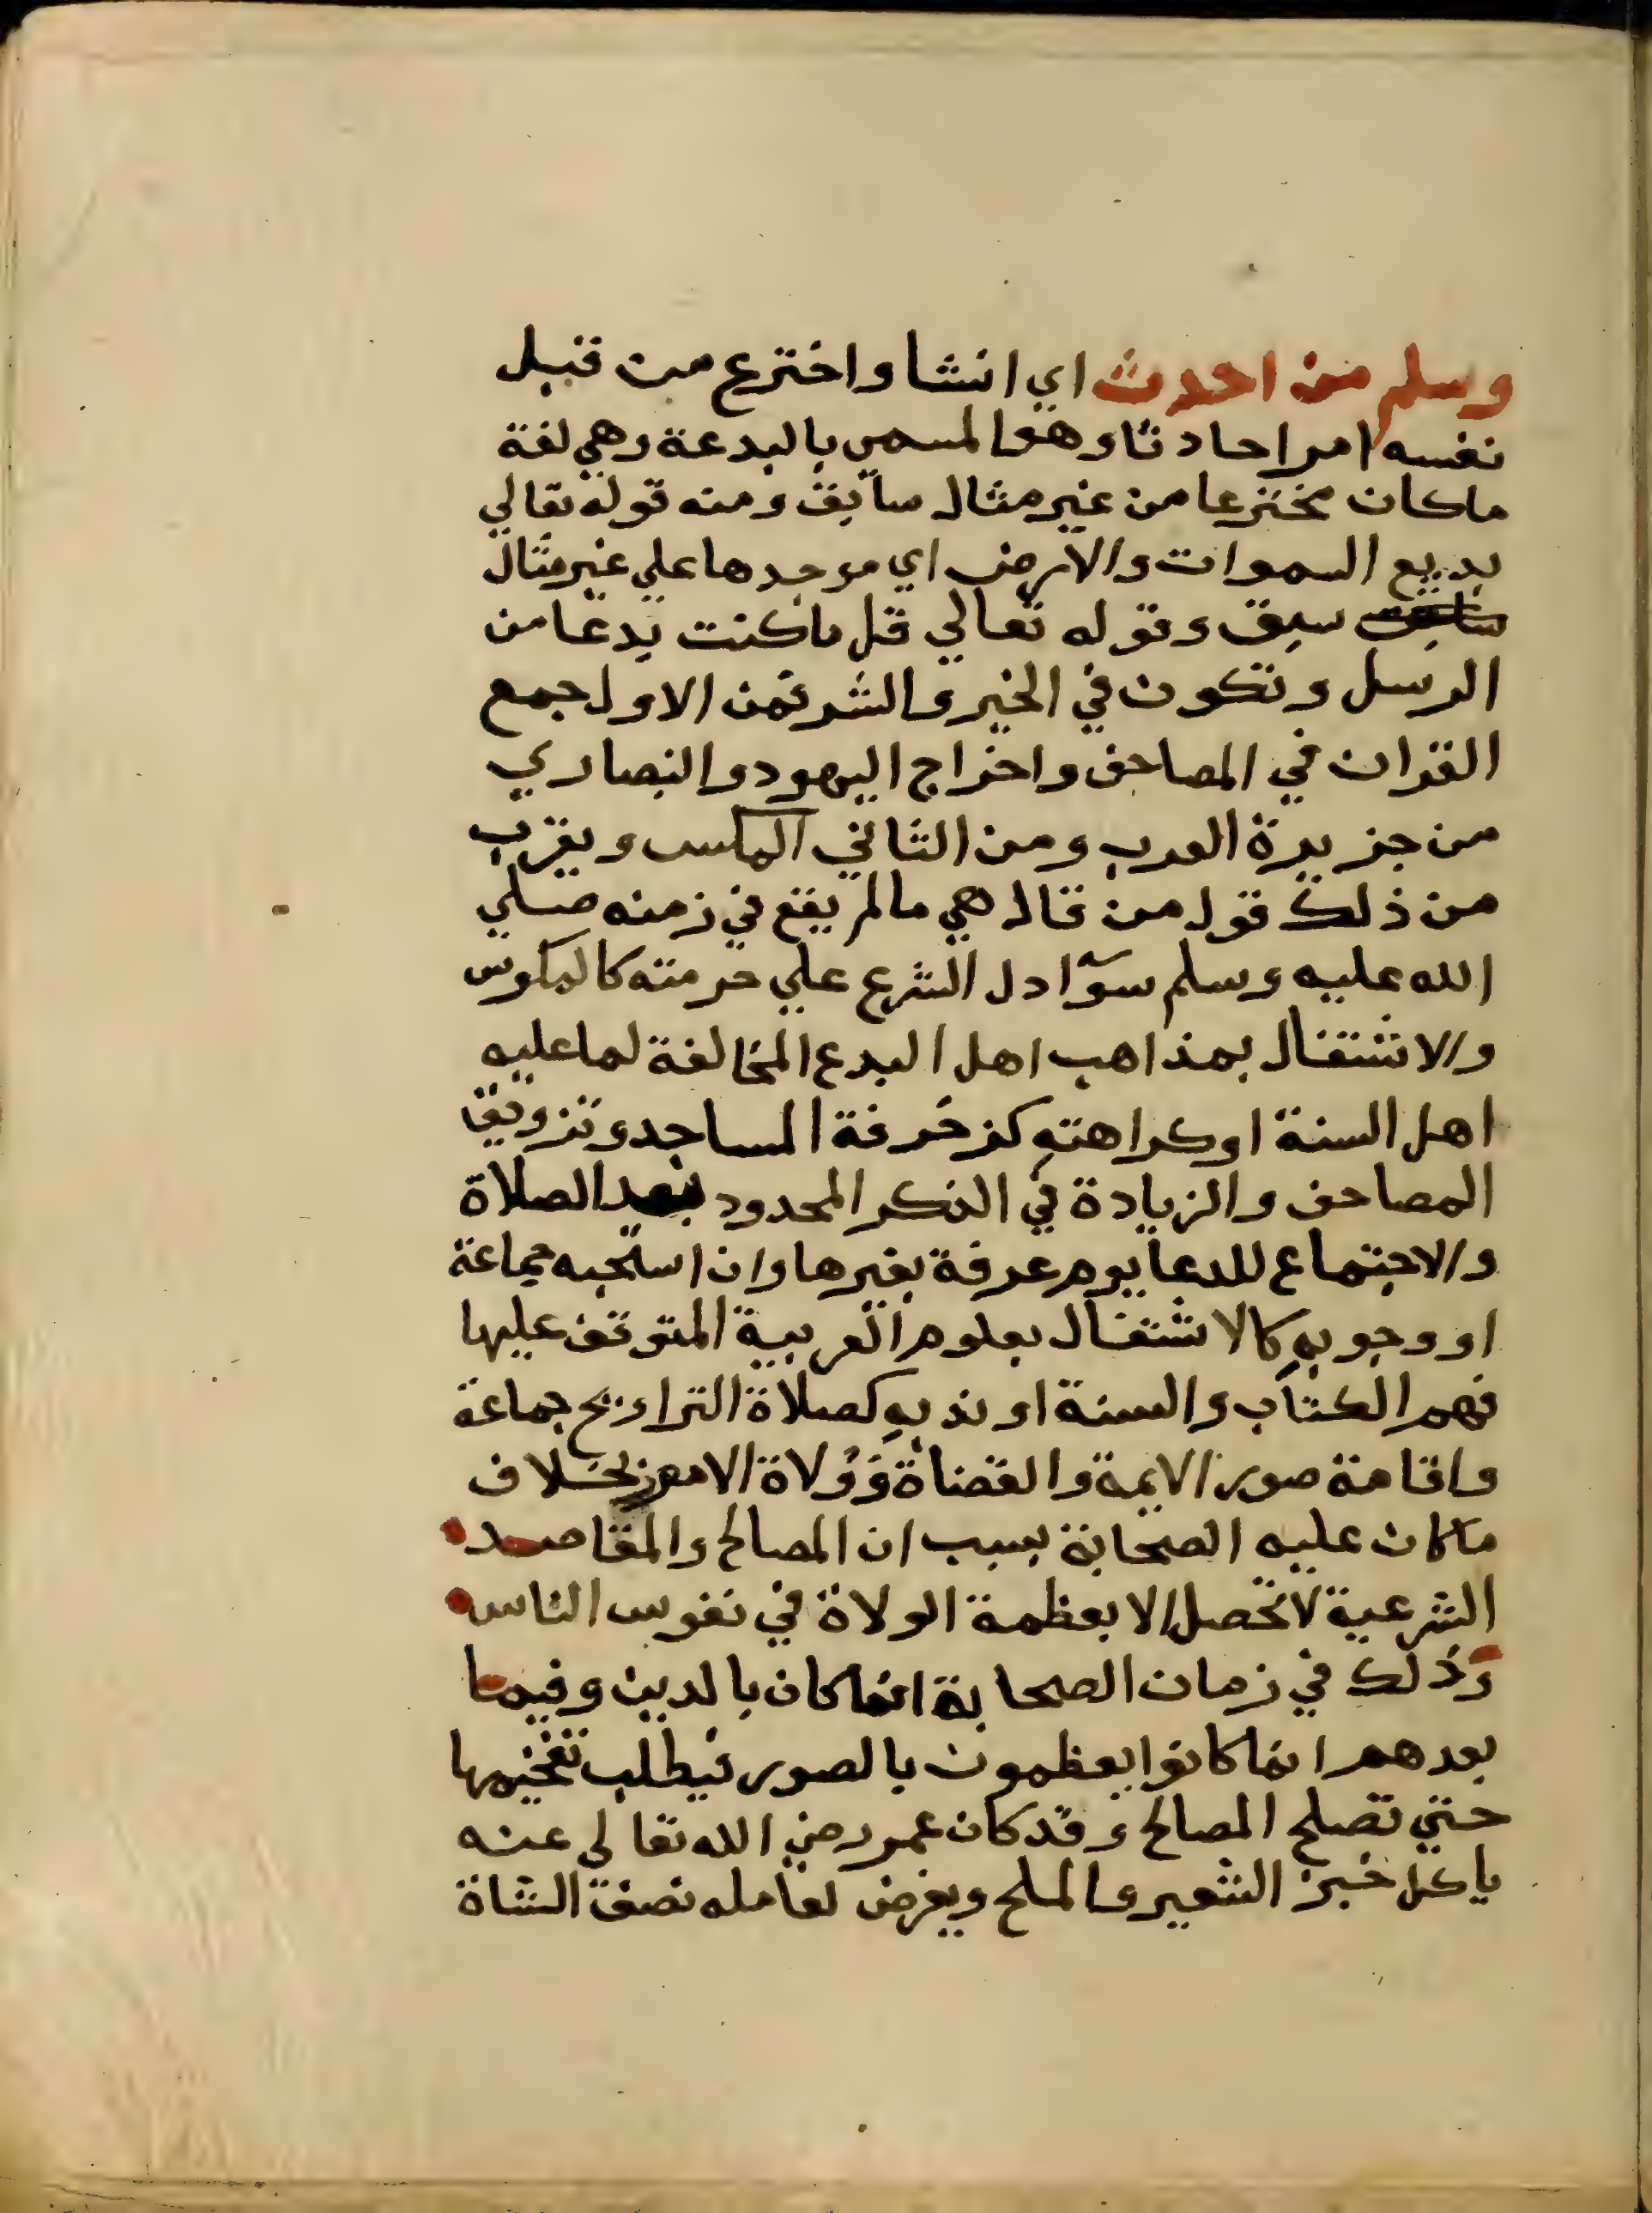 وسلم من احدث اي انشا واخترع من قبل
نفسه امرا حادثا وهو المسمى بالبدعة وهي لغة
ماكان مخترعا من غير مثال سابق ومنه قوله تعالي
بديع السموات والارض اي موجدها علي غير مثال
سبق وقوله تعالي قل ماكنت بدعا من
الرسل وتكون في الخير والشر فمن الاول جمع
القران في المصاحف واخراج اليهود والنصاري
من جزيرة العرب ومن الثاني المكس ويقرب
من ذلك قول من قال هي مالم يقع في زمنه صلي
الله عليه وسلم سوآ دل الشرع علي حرمته كالمكوس
والاشتغال بمذاهب اهل البدع المخالفة لما عليه
اهل السنة او كراهته كزخرفة المساجد وتزويق
المصاحف والزيادة في الذكر المحدود بعد الصلاة
والاجتماع للدعا يوم عرفة بغيرها وان استحبه جماعة
او وجوبه كالاشتغال بعلوم العربية المتوقف عليها
فهم الكتاب والسنة او ندبه كصلاة التراويح جماعة
واقامة صور الايمة والقضاة وولاة الامور بخلاف
ماكان عليه الصحابة بسبب ان المصالح والمقاصد
الشرعية لا تحصل الا بعظمة الولاة في نفوس الناس
وذلك في زمان الصحابة انما كان بالدين وفيما
بعدهم انما كانوا يعظمون بالصور فيطلب تفخيمها
حتي تصلح المصالح وقد كان عمر رضي الله تعالي عنه
ياكل خبز الشعير والملح ويفرض لعامله نصف الشاة